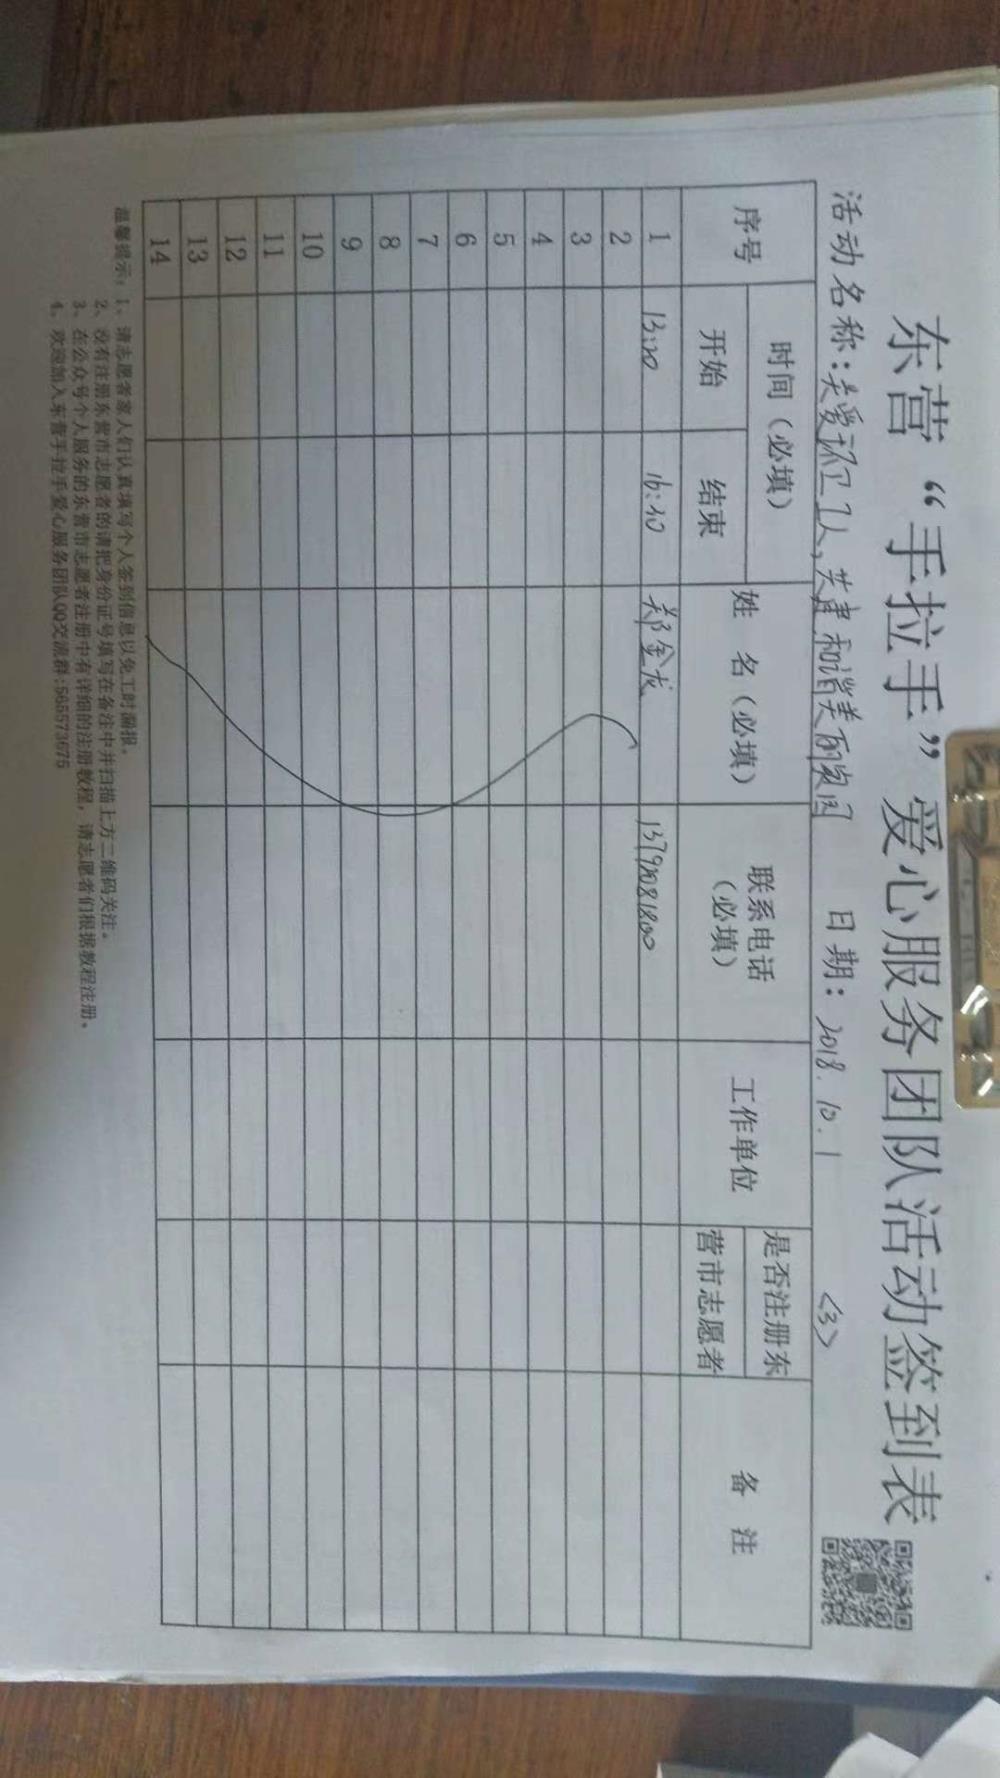 东营“手拉手”爱心服务团队活动签到表
活动名称：关爱环卫工人，共建和谐美丽家园 日期：2018.10.1 <3>
序号 时间（必填） 姓 名（必填） 联系电话（必填） 工作单位 是否注册东营市志愿者 备 注
开始 结束
1 13:20 16:30 郑金龙
2
3
4
5
6
7
8
9
10
11
12
13
14
温馨提示：1、请志愿者家人们认真填写个人签到信息以免工时漏报。
2、没有注册东营市志愿者的请把身份证号填写在备注中并扫描上方二维码关注。
3、在公众号个人服务的东营市志愿者注册中有详细的注册教程，请志愿者们根据教程注册。
4、欢迎加入东营手拉手爱心服务团队QQ交流群:565573675